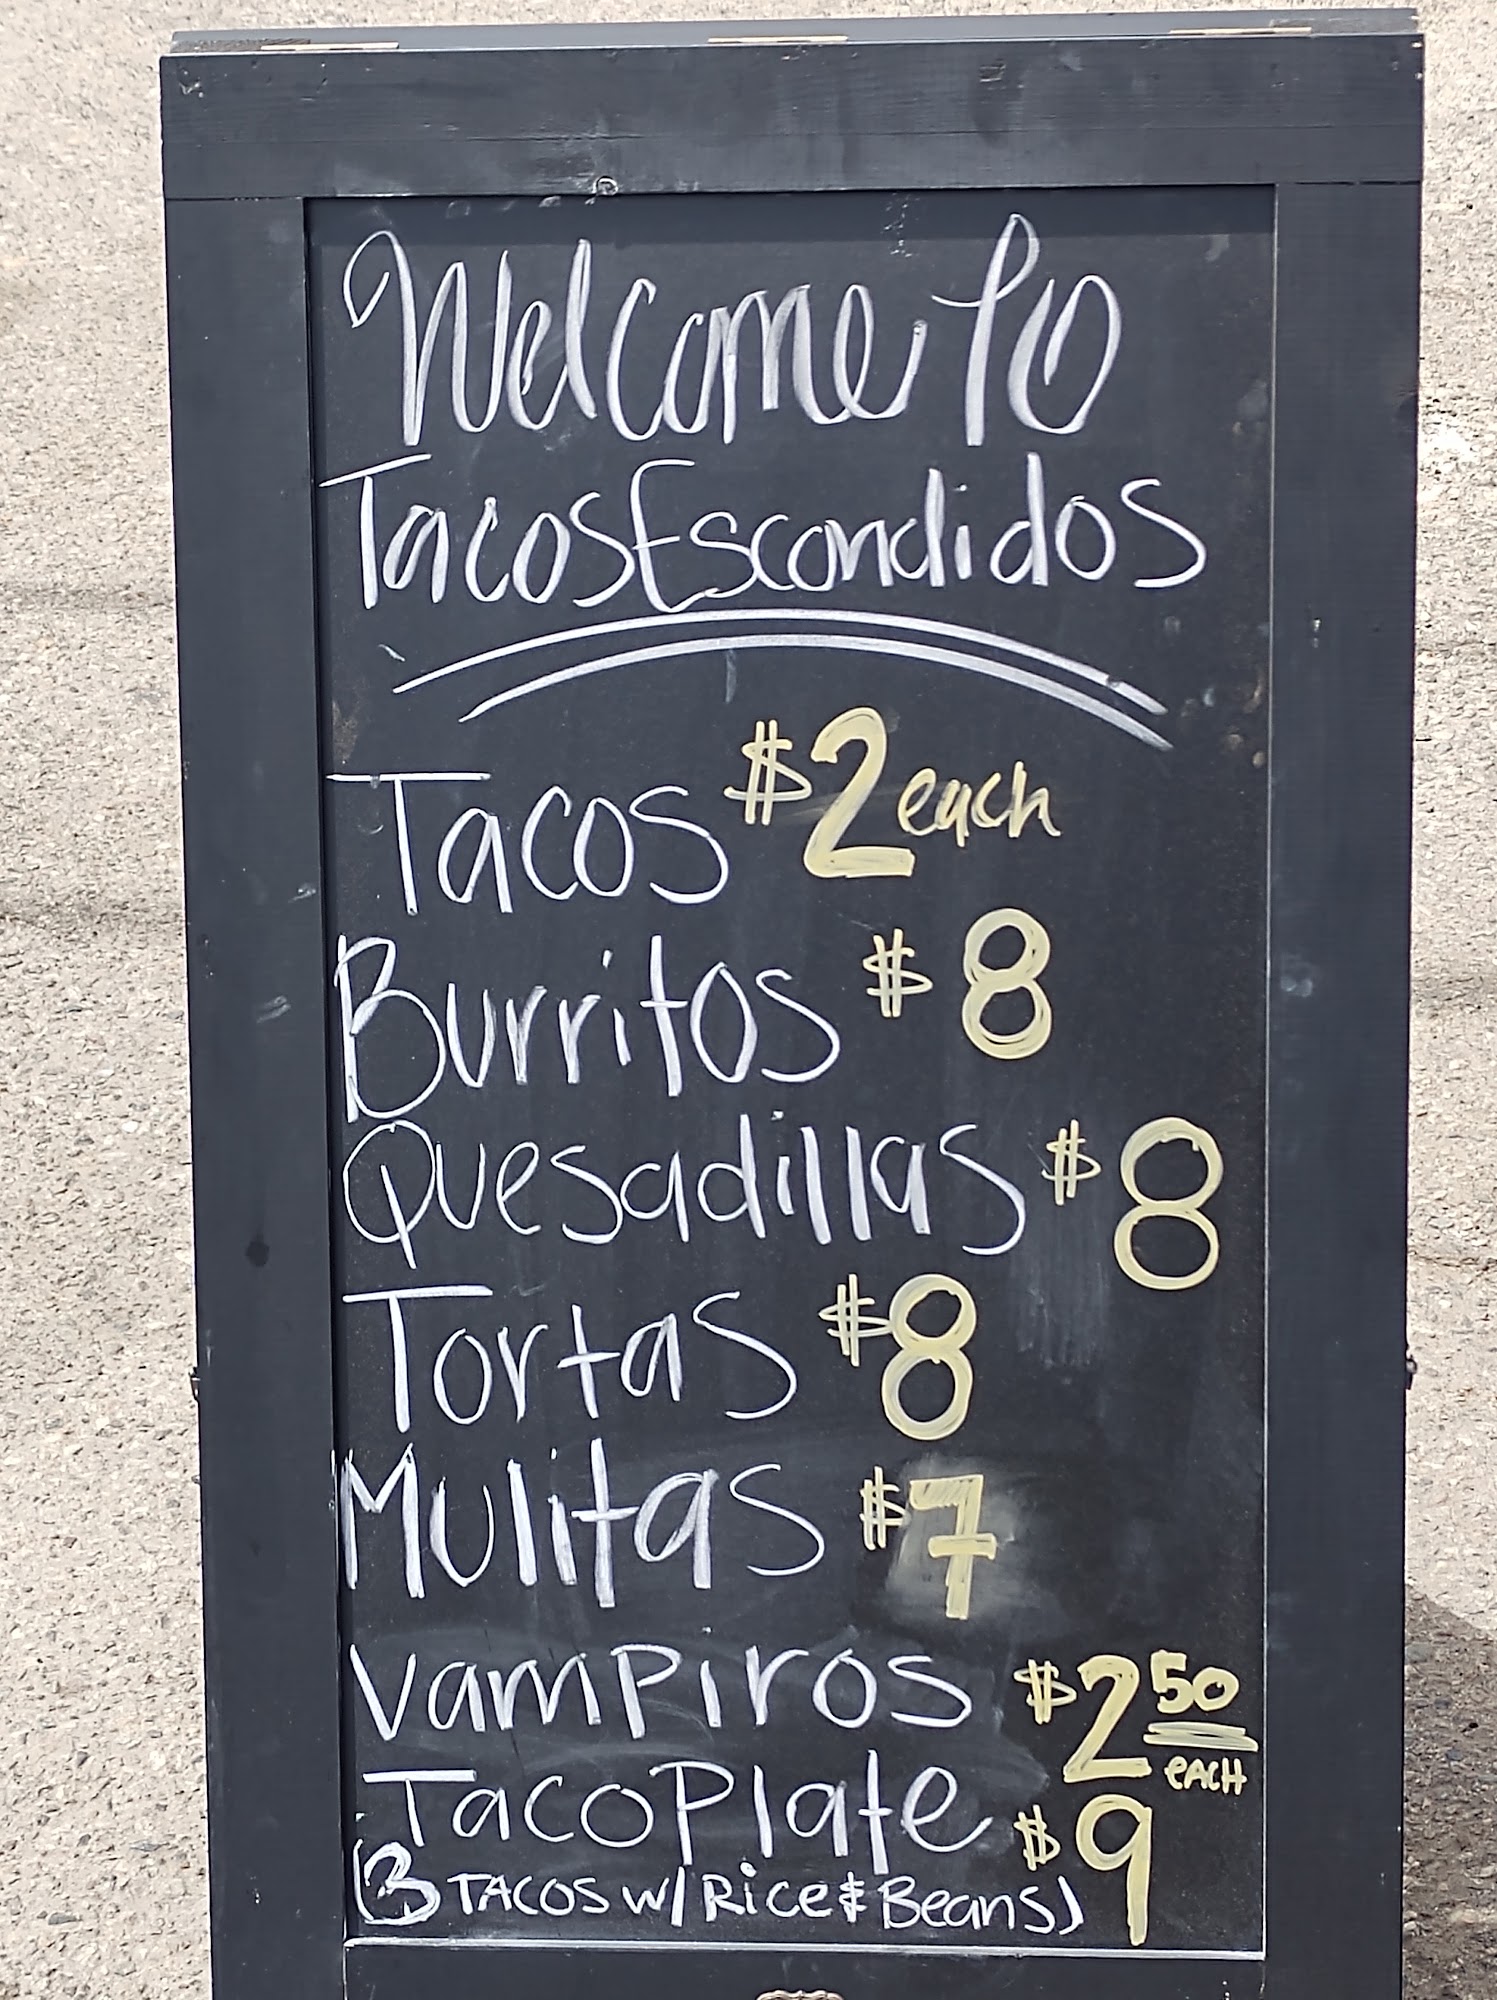 Welcome To
Tacos Escondidos
Tacos $2 each
Burritos $8
Quesadillas $8
Tortas $8
Mulitas $7
Vampiros $2 50 each
Taco Plate $9
(3 TACOS w/ Rice & Beans)